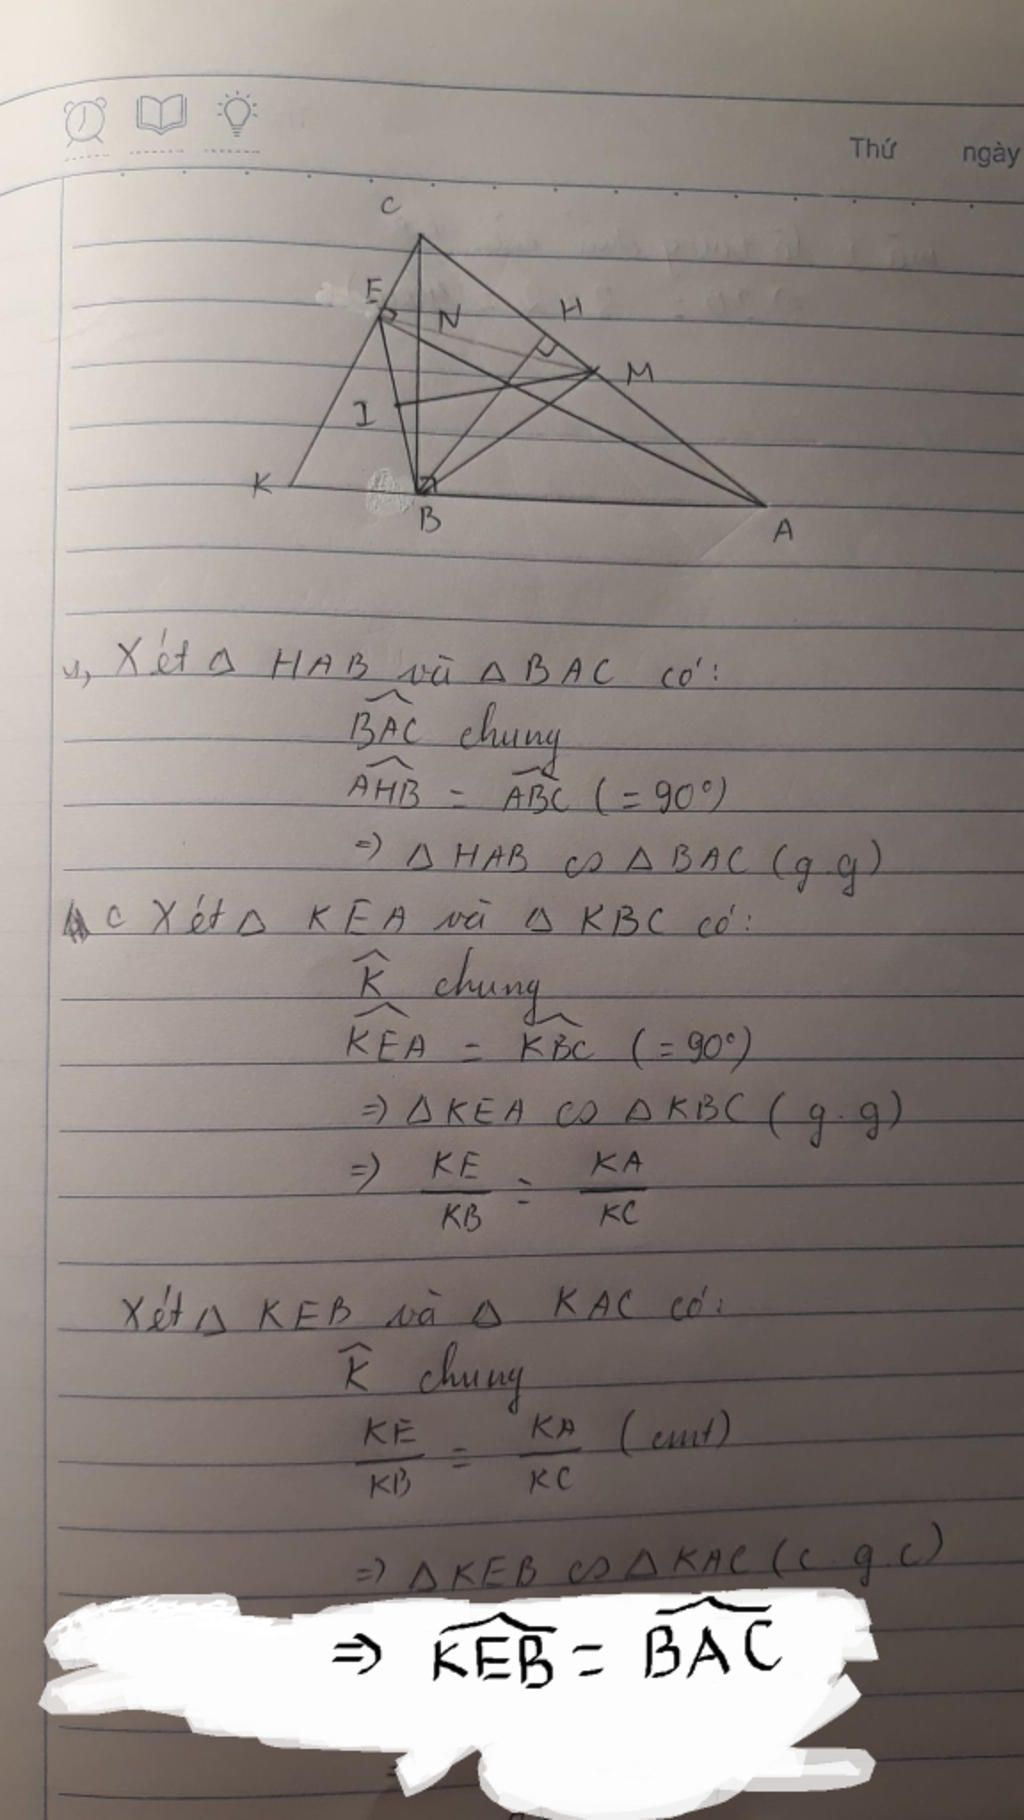 Thứ ngày
C
E
N
H
M
I
K
B
A
Xét △ HAB và △ BAC có:
BAC chung
AHB = ABC (= 90°)
=> △ HAB ∽ △ BAC (g.g)
c Xét △ KEA và △ KBC có:
K chung
KEA = KBC (= 90°)
=> △ KEA ∽ △ KBC (g.g)
=> KE/KB = KA/KC
Xét △ KEB và △ KAC có:
K chung
KE/KB = KA/KC (cmt)
=> △ KEB ∽ △ KAC (c.g.c)
=> KEB = BAC